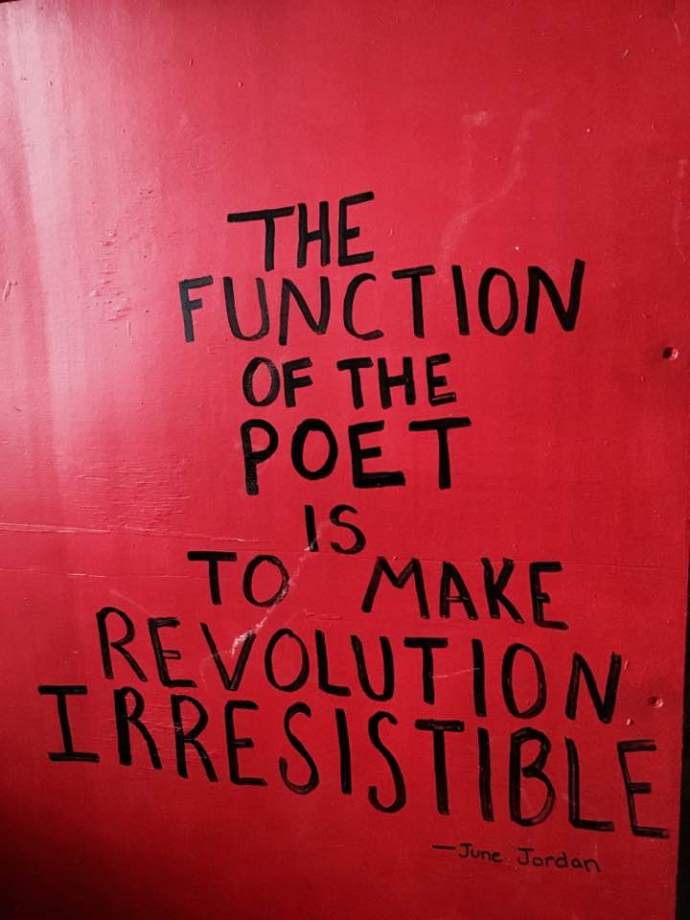 THE
FUNCTION
OF THE
POET
IS
TO MAKE
REVOLUTION
IRRESISTIBLE
—June Jordan